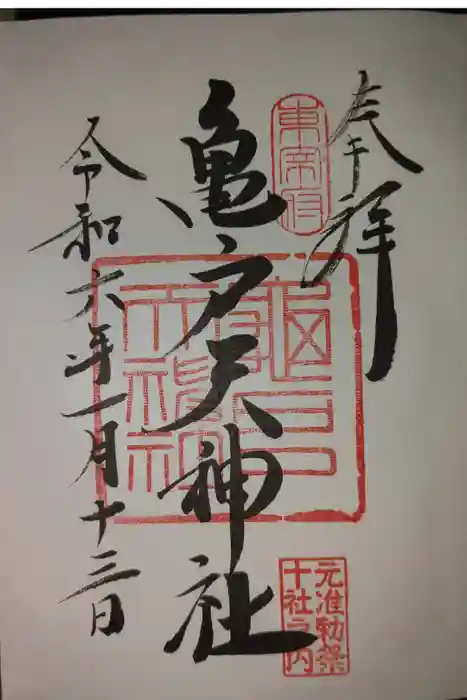 奉拝
東宰府
亀戸天神社
龜戸天神社
元准勅祭
十社之内
令和六年一月十三日